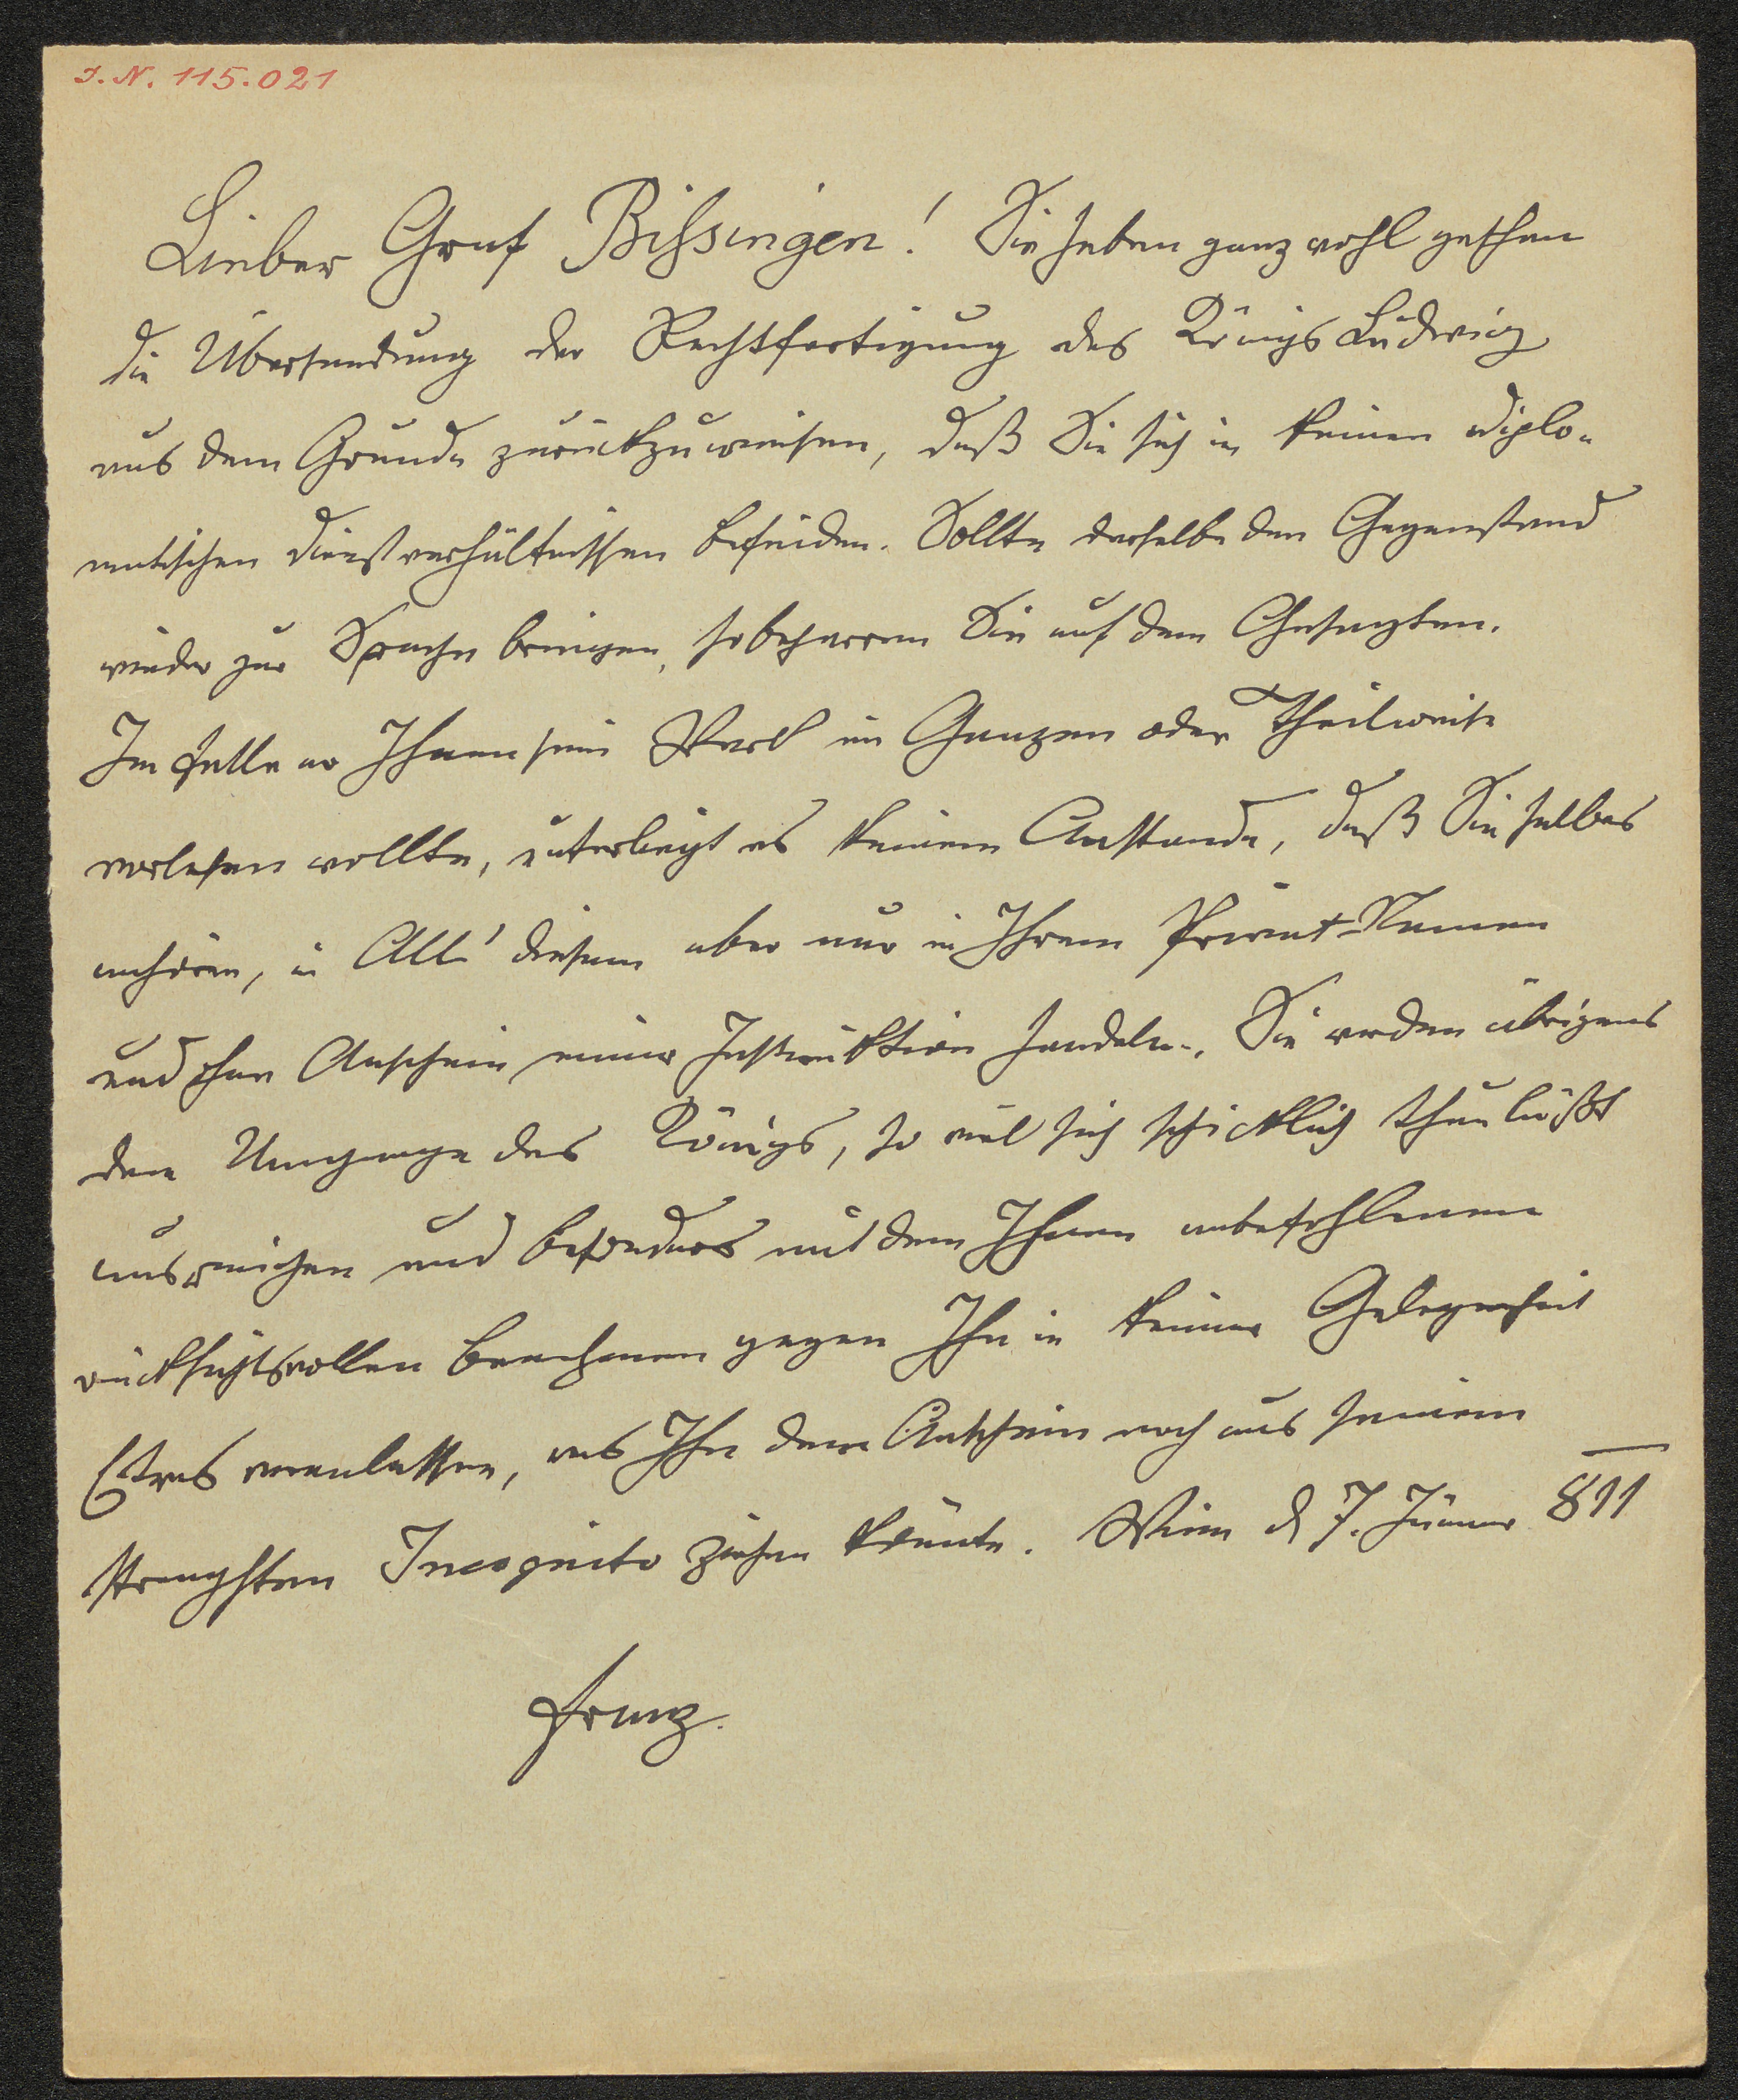 I. N. 115.021
Lieber Graf Bißsingen! Sie haben ganz wohl gethan
die Übersendung der Rechtfertigung des Königs Ludwig
aus dem Grunde zurückzuweisen, daß Sie sich in keinen diplo-
matischen Dienstverhältnissen befinden. Sollte derselbe den Gegenstand
wieder zur Sprache bringen, so beharren Sie auf dem Gesagten.
Im Falle er Ihnen sein Werk im Ganzen oder Theilweise
vorlesen wollte, unterliegt es keinem Anstande, daß Sie selbes
anhören, in All' diesem aber nur in Ihrem Privat-Namen
und ohne Anschein einer Instruktion handeln. Sie werden übrigens
dem Umgange des Königs, so viel sich schicklich thun läßt
ausweichen und besonders mit dem Ihnen anbefohlenen
rücksichtsvollen Benehmen gegen Ihn in keiner Gelegenheit
Etwas veranlassen, was Ihn dem Anschein nach aus seinem
strengsten Incognito ziehen könnte. Wien d 7. Jänner 811
Franz.